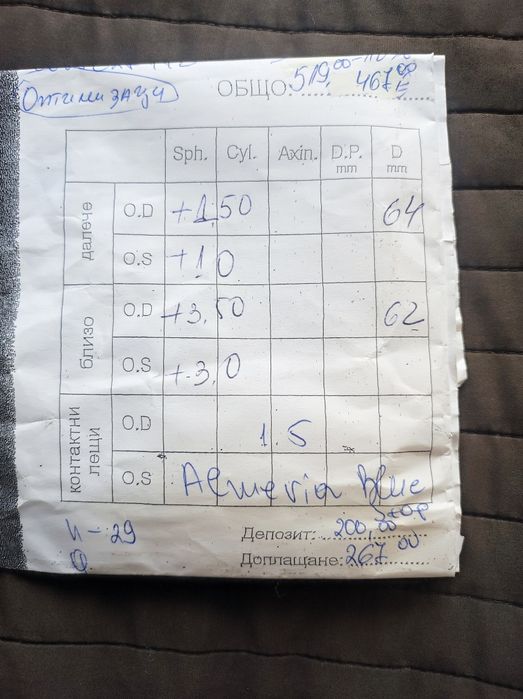 Оптимизаци
ОБЩО: 519,00 -10%
467,00
Sph. Cyl. Axin. D.P. mm D mm
далече O.D +1,50 64
O.S +1 0
близо O.D +3,50 62
O.S +3,0
контактни лещи O.D 1.5
O.S Almeria Blue
Stop
Депозит: 200,00
Доплащане: 267 00